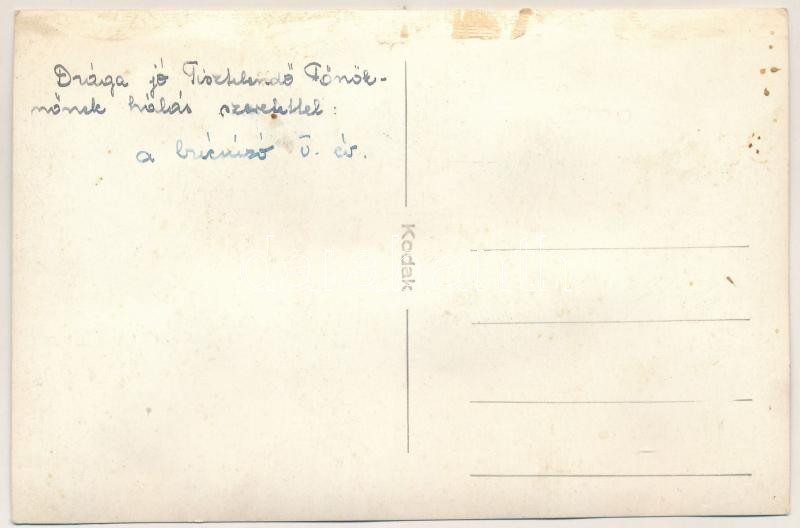 Drága jó Tisztelendő Főnök-
nőnek hálás szeretettel:
a búcsúzó V. év.
Kodak